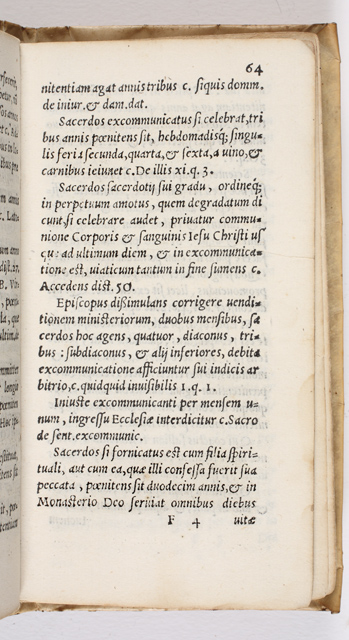 64
nitentiam agat annis tribus c. siquis domm.
de iniur. & dam. dat.
Sacerdos excommunicatus si celebrat, tri
bus annis pœnitens sit, hebdomadisq́; singu-
lis feria secunda, quarta, & sexta, a uino, &
carnibus ieiunet c. De illis xi. q. 3.
Sacerdos sacerdotij sui gradu, ordineq́;
in perpetuum amotus, quem degradatum di
cunt, si celebrare audet, priuatur commu-
nione Corporis & sanguinis Iesu Christi us
que ad ultimum diem, & in excommunica-
tione est, uiaticum tantum in fine sumens c.
Accedens dist. 50.
Episcopus dißimulans corrigere uendi-
tionem ministeriorum, duobus mensibus, sa
cerdos hoc agens, quatuor, diaconus, tri-
bus: subdiaconus, & alij inferiores, debita
excommunicatione afficiuntur sui indicis ar
bitrio, c. quidquid inuisibilis 1. q. 1.
Iniuste excommunicanti per mensem u-
num, ingressu Ecclesiæ interdicitur c. Sacro
de sent. excommunic.
Sacerdos si fornicatus est cum filia spiri-
tuali, aut cum ea, quæ illi confessa fuerit sua
peccata, pœnitens sit duodecim annis, & in
Monasterio Deo seruiat omnibus diebus
F 4 uitæ